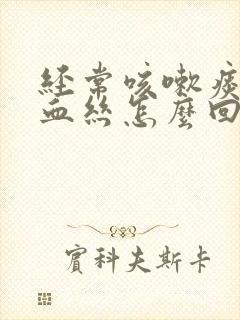 经常咳嗽痰
血丝怎麼回
賓科夫斯卡